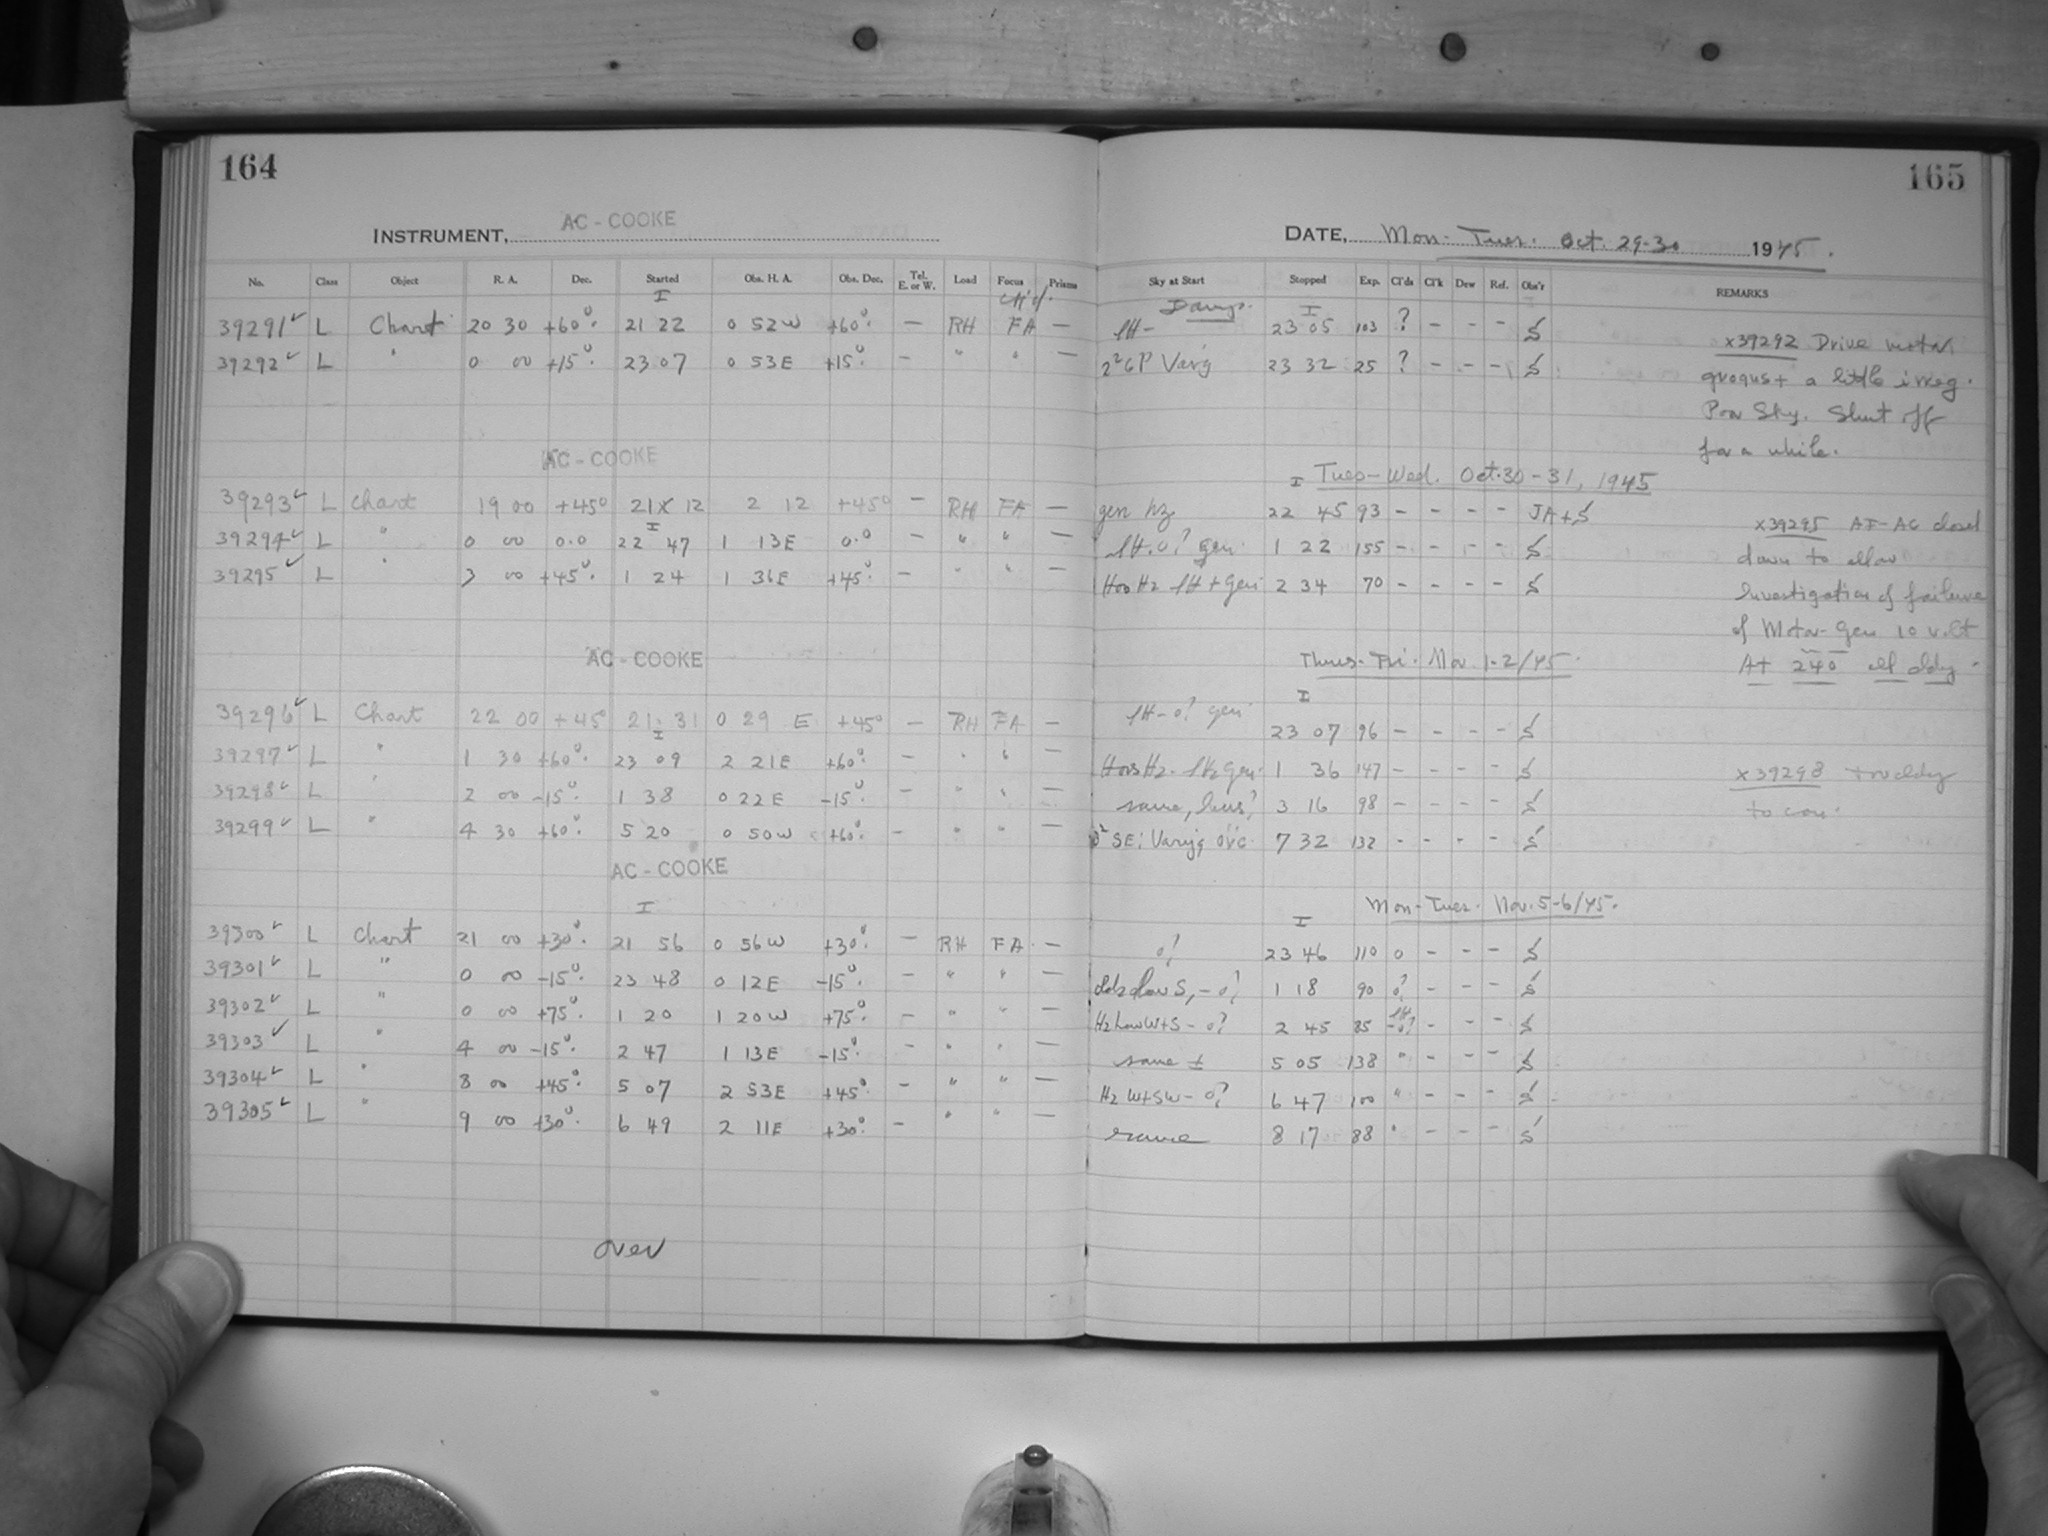 164
165
INSTRUMENT, AC - COOKE
DATE, Mon - Tues. Oct. 29-30 1945.
No. Class Object R. A. Dec. Started Obs. H. A. Obs. Dec. Tel. E. or W. Load Focus Prisms Sky at Start Stopped Exp. Cl'ds Cl'k Dew Ref. Obs'r REMARKS
I I
39291 ✓ L Chart 20 30 +60°. 21 22 0 52W +60°. — RH FA — 23 05 103 ? - - - S
39292 ✓ L " 0 00 +15°. 23 07 0 53E +15°. — " " — 23 32 25 ? - - - S
x39292 Drive motor
a little irreg.
Poor Sky. Shut off
for a while.
AC - COOKE
I Tues-Wed. Oct. 30-31, 1945
39293 ✓ L Chart 19 00 +45° 21 12 2 12 +45° — RH FA — gen hz 22 45 93 - - - - JA+S
39294 ✓ L " 0 00 0.0 22 47 1 13E 0.0 — " " — 1 22 155 - - - - S
39295 ✓ L " 3 00 +45°. 1 24 1 36E +45°. — " " — 2 34 70 - - - - S
x39295 AI-AC closed
down to allow
Investigation of failure
of Motor-Gen 10 volt
At 240
AC - COOKE
Thurs-Fri. Nov. 1-2/45.
I
39296 ✓ L Chart 22 00 +45° 21 31 0 29 E +45° — RH FA — 23 07 96 - - - - S
39297 ✓ L " 1 30 +60°. 23 09 2 21E +60°. — " " — 1 36 147 - - - - S
39298 ✓ L " 2 00 -15°. 1 38 0 22E -15°. — " " — 3 16 98 - - - - S
39299 ✓ L " 4 30 +60°. 5 20 0 50W +60°. — " " — 7 32 132 - - - - S
x39298 too cldy
to con.
AC - COOKE
Mon-Tues. Nov. 5-6/45.
I I
39300 ✓ L Chart 21 00 +30°. 21 56 0 56W +30°. — RH FA. — 0? 23 46 110 0 - - - S
39301 ✓ L " 0 00 -15°. 23 48 0 12E -15°. — " " — 1 18 90 0? - - - S
39302 ✓ L " 0 00 +75°. 1 20 1 20W +75°. — " " — Hz Low W+S - 0? 2 45 85 - - - S
39303 ✓ L " 4 00 -15°. 2 47 1 13E -15°. — " " — same ± 5 05 138 " - - - S
39304 ✓ L " 8 00 +45°. 5 07 2 53E +45°. — " " — Hz W+SW - 0? 6 47 100 " - - - S
39305 ✓ L " 9 00 +30°. 6 49 2 11E +30°. — " " — same 8 17 88 " - - - S
over